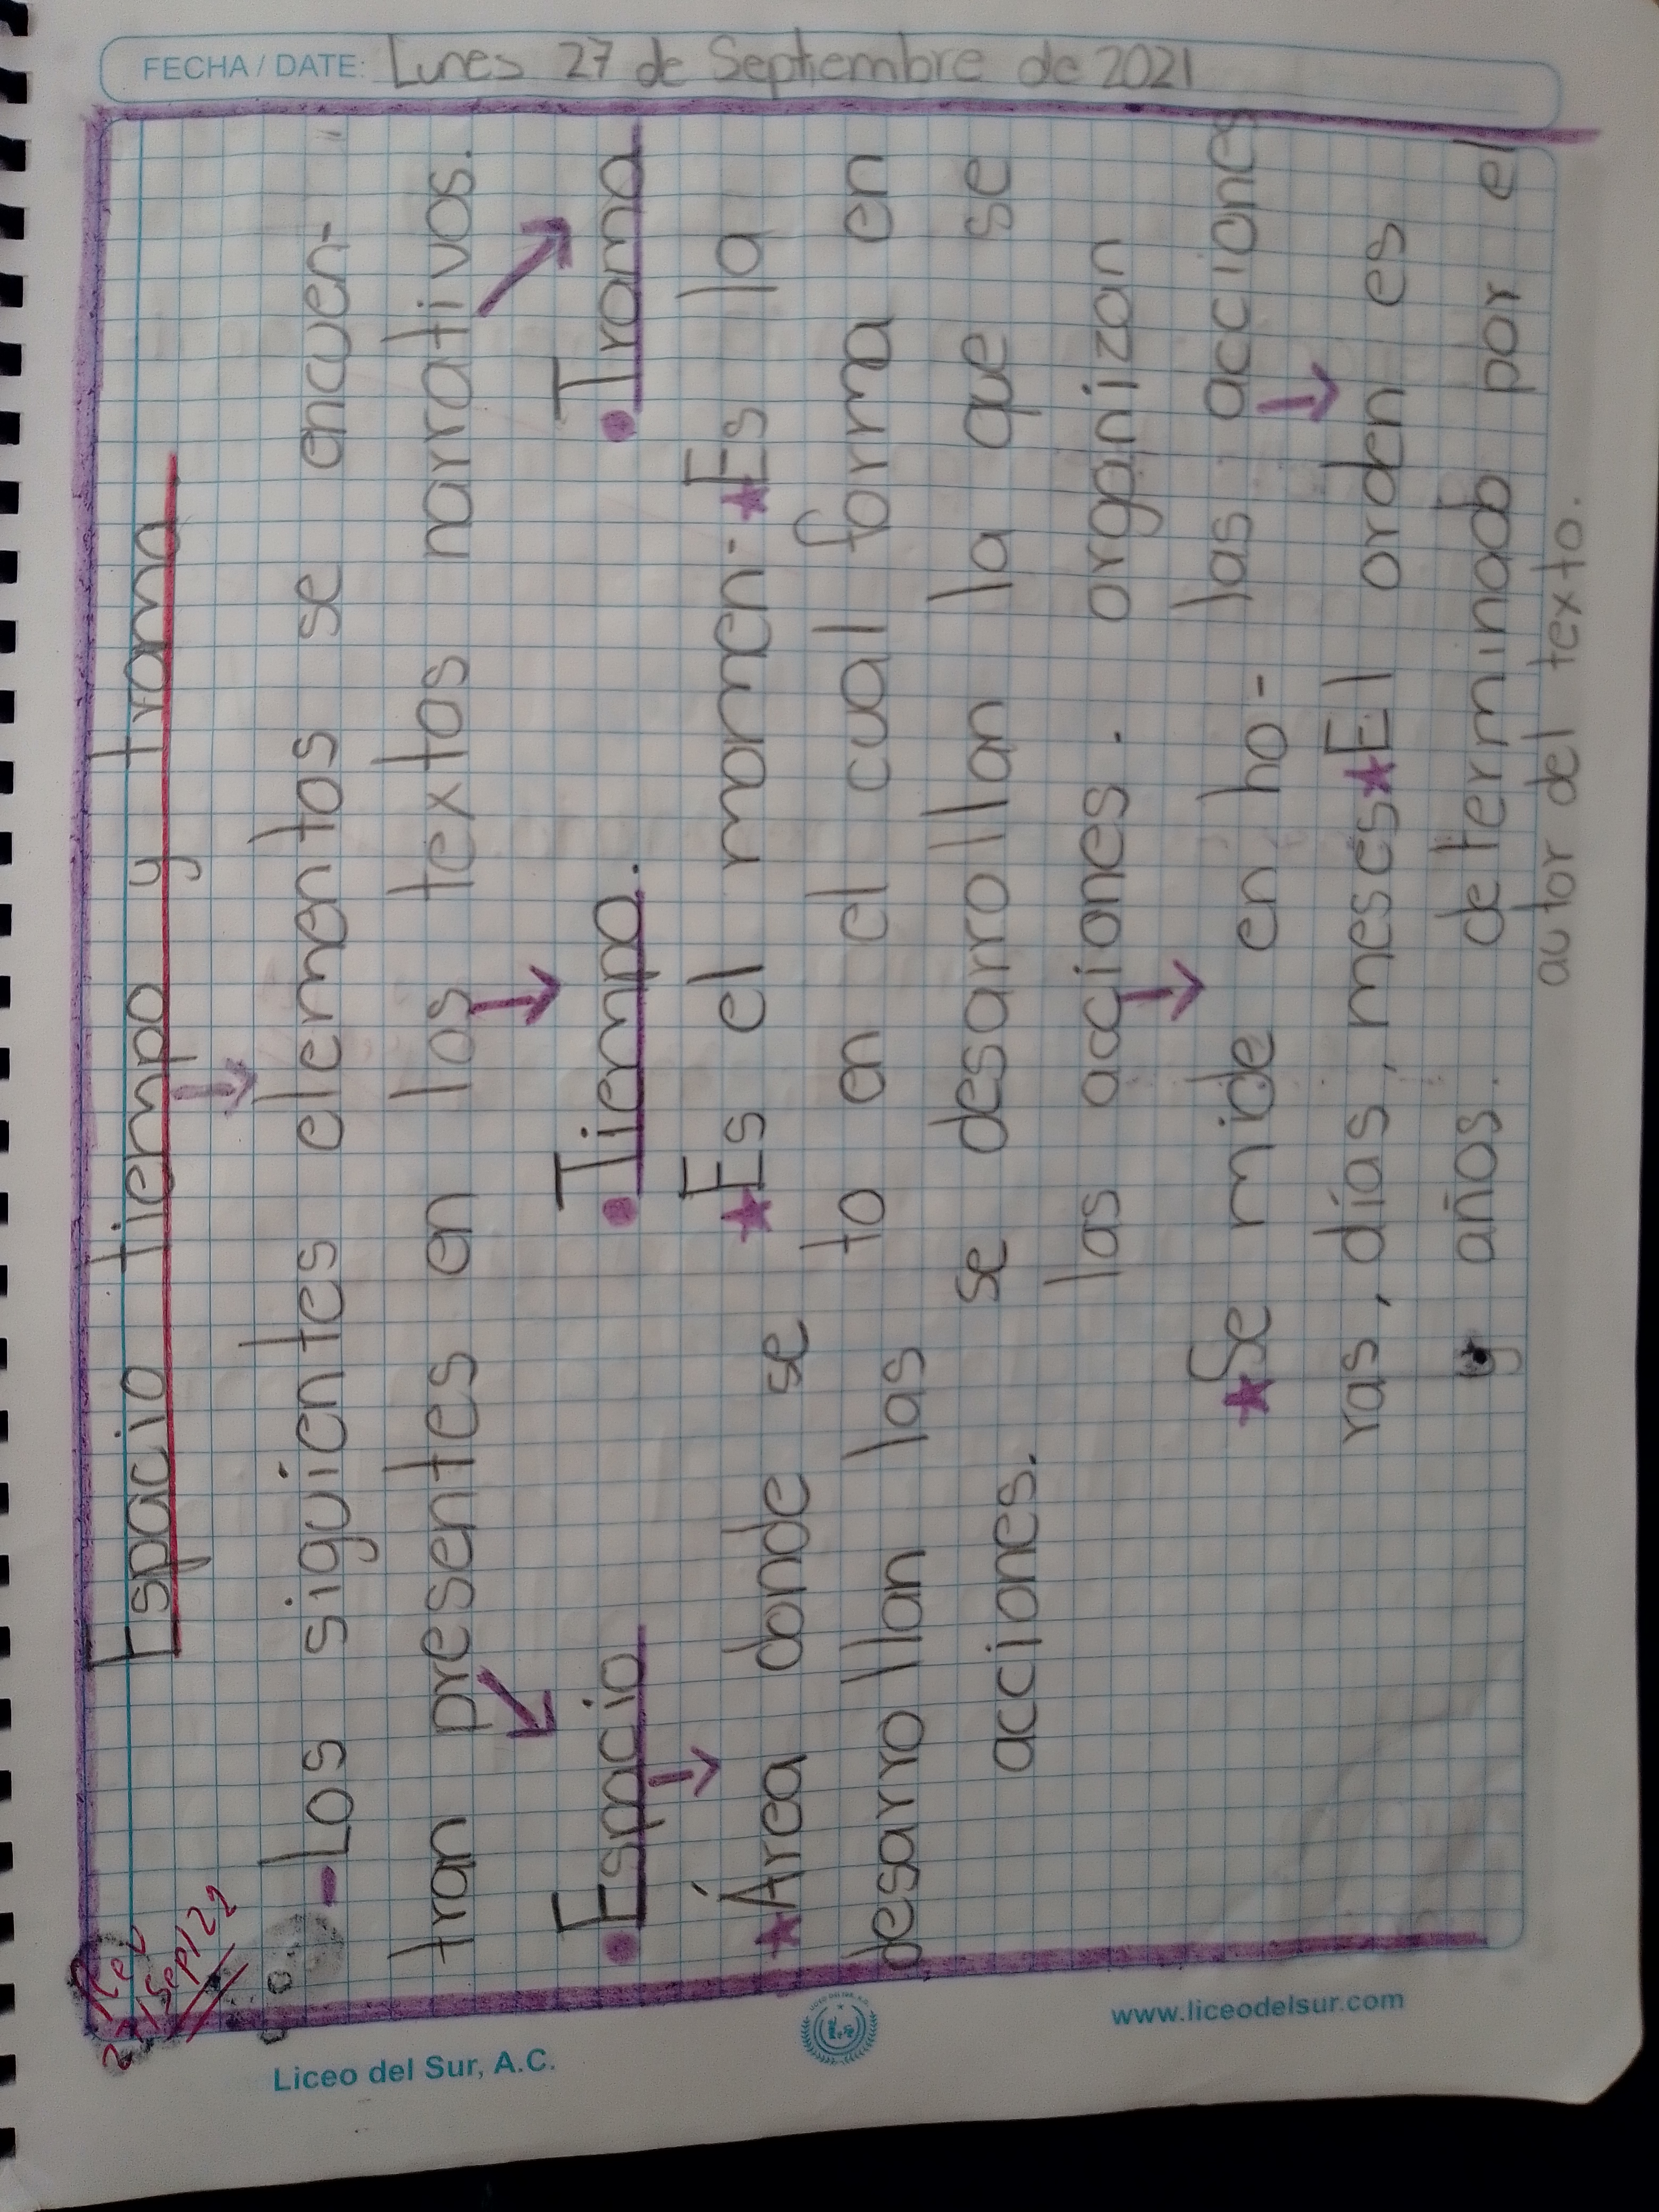 FECHA / DATE: Lunes 27 de Septiembre de 2021
Rev
27/Sep/22
Espacio tiempo y trama
-Los siguientes elementos se encuen-
tran presentes en los textos narrativos.
• Espacio
★ Área donde se
desarrollan las
acciones.
• Tiempo.
★ Es el momen-
to en el cual
se desarrollan
las aciones.
★ Se mide en ho-
ras, días, meses
y años.
• Trama
★ Es la
forma en
la que se
organizan
las acciones
★ El orden es
determinado por el
autor del texto.
Liceo del Sur, A.C.
www.liceodelsur.com